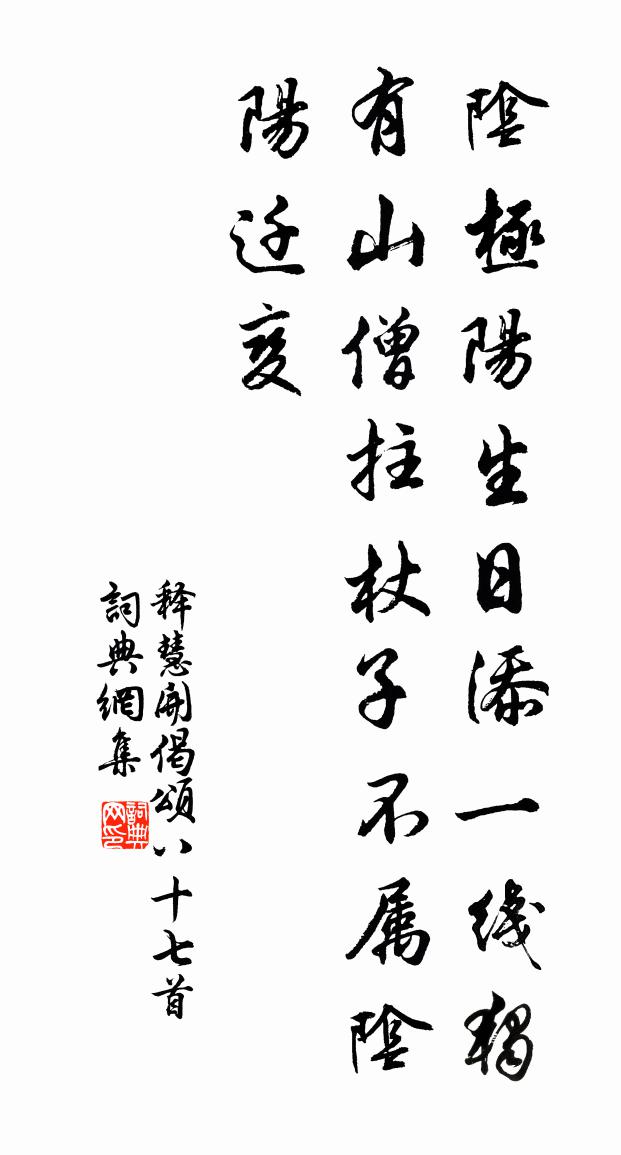 陰極陽生日添一线獨
有山僧拄杖子不属陰
陽迁变
释慧開偈頌八十七首
詞典網集
詞典网印